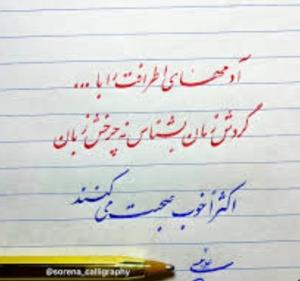 آدمهای اطرافت را با ...
گردش زمان بشناس نه چرخش زبان
اکثراً خوب صحبت می کنند
@sorena_calligraphy